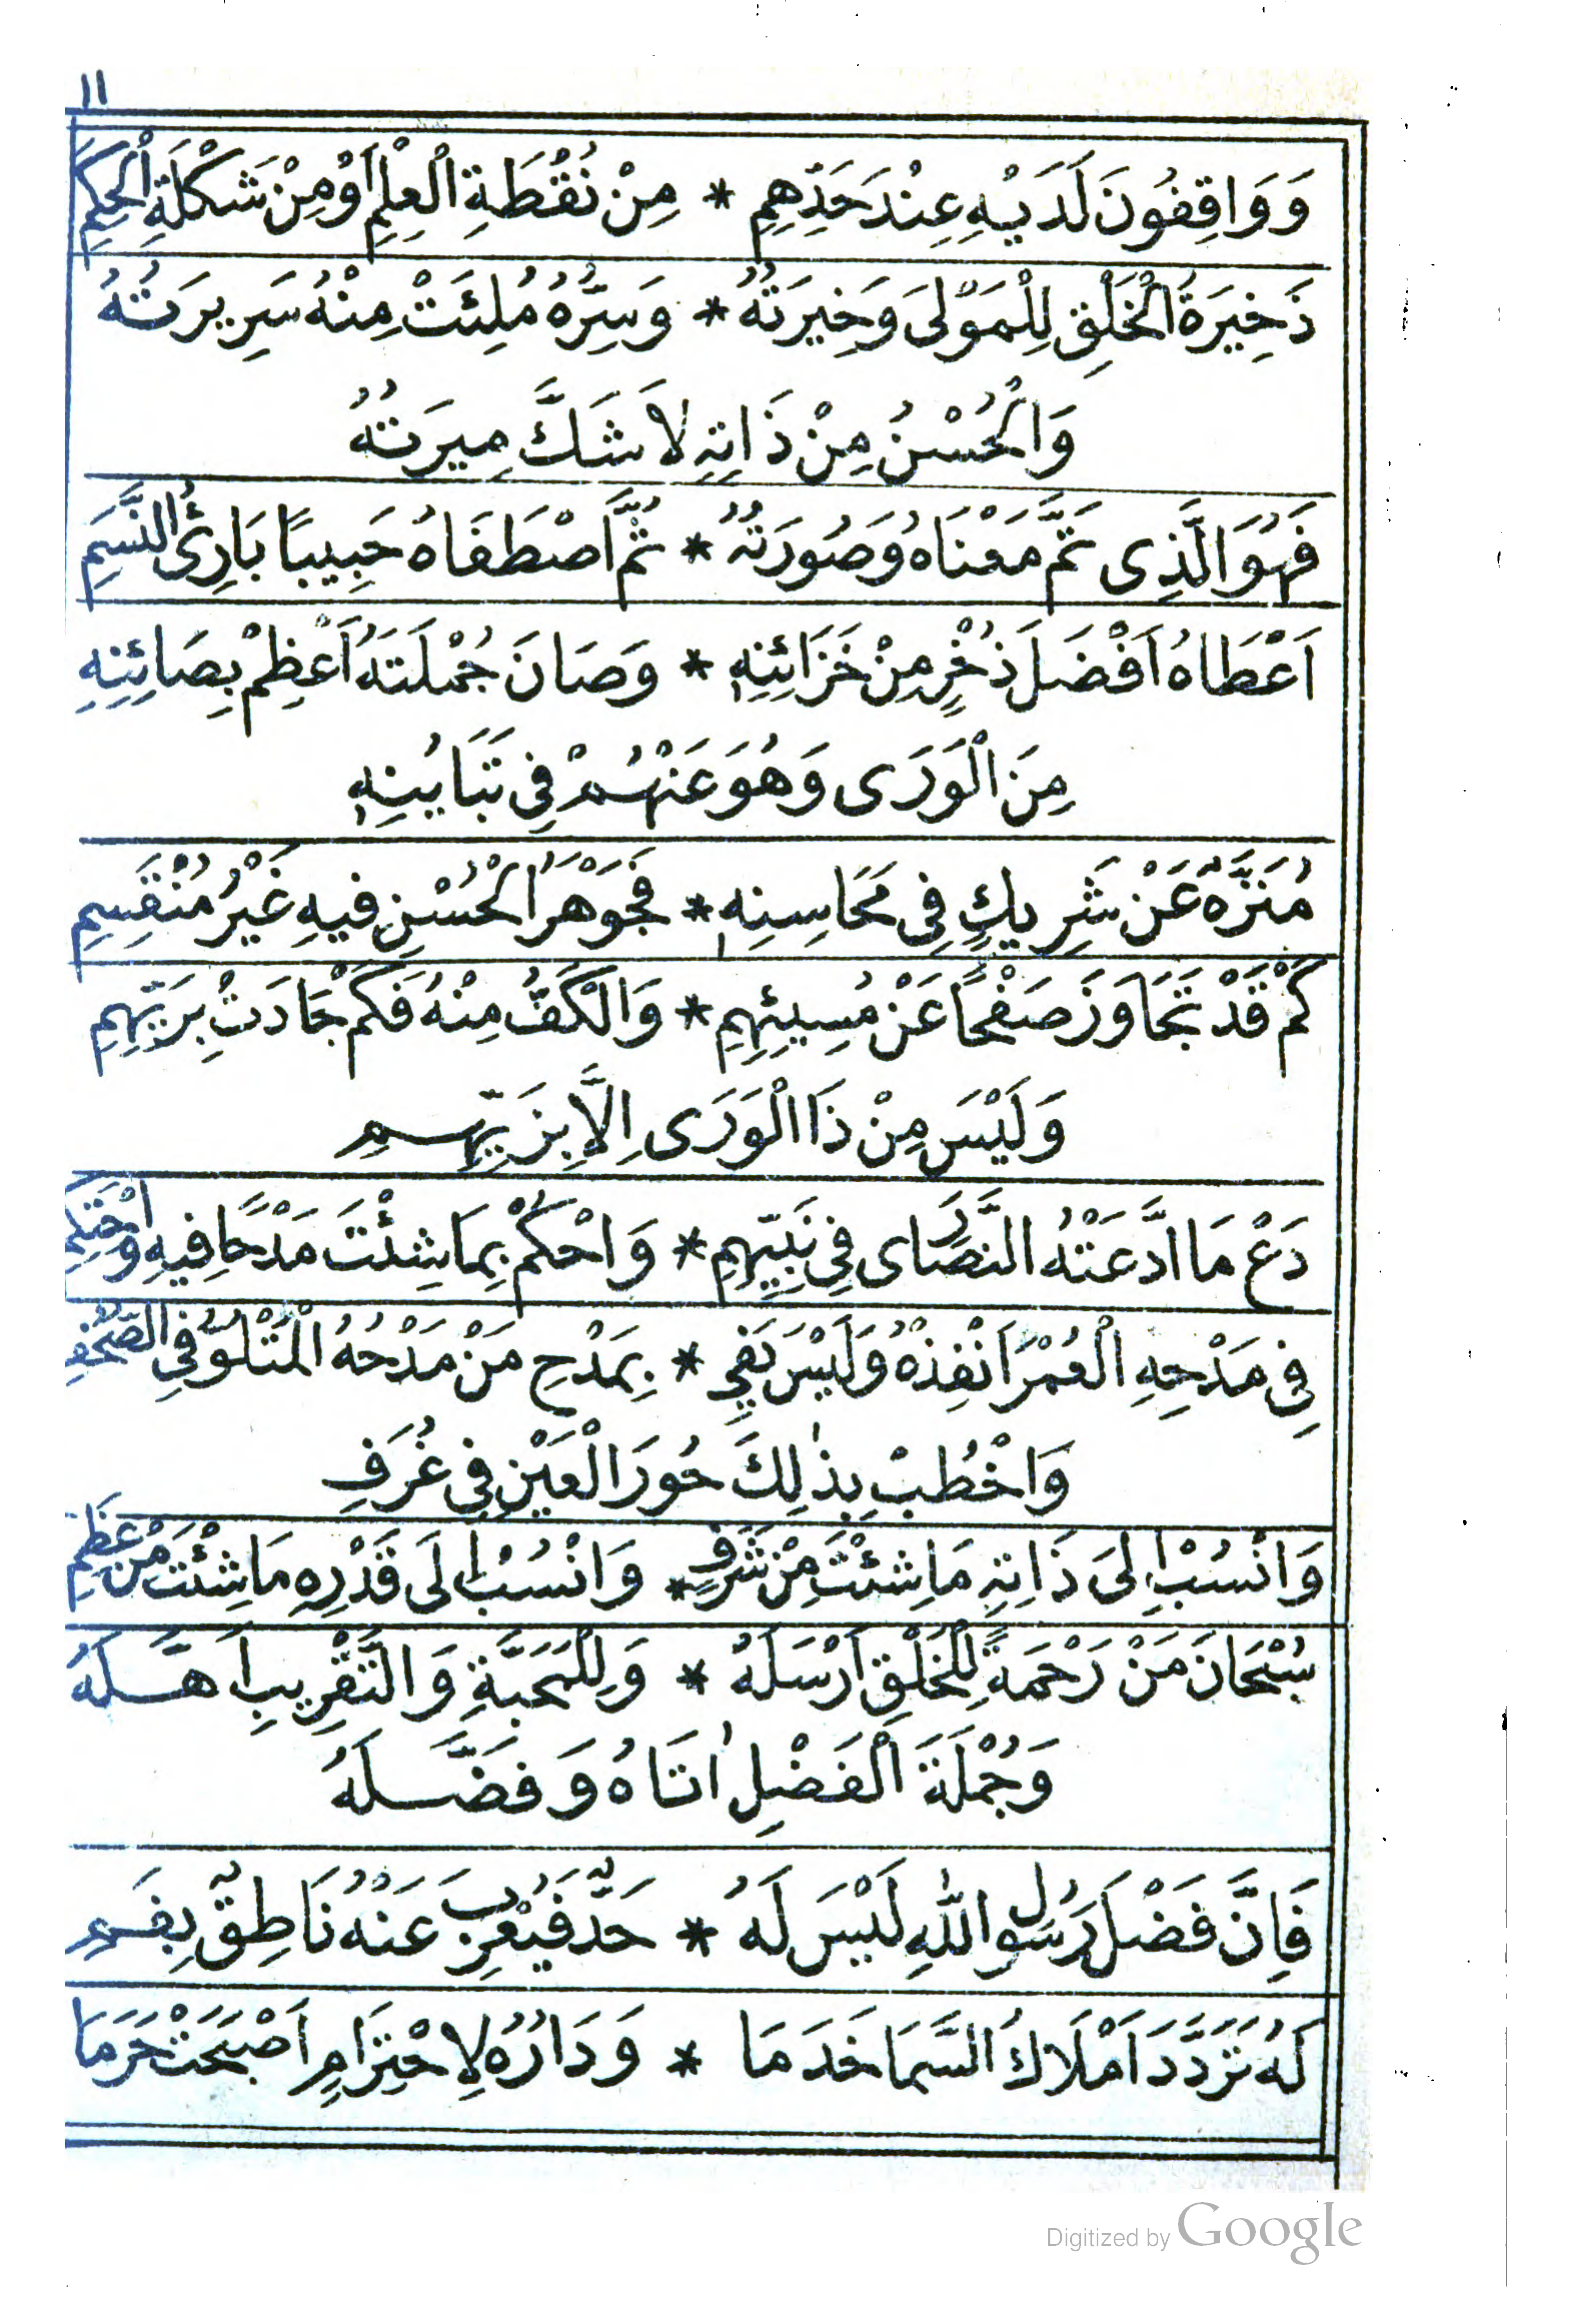 ١١
وَوَاقِفُونَ لَدَيْهِ عِنْدَ حَدِّهِمِ * مِنْ نُقْطَةِ الْعِلْمِ اَوْ مِنْ شَكْلَةِ الْحِكَمِ
ذَخِيرَةُ الْخَلْقِ لِلْمَوْلَى وَخِيرَتُهُ * وَسِرُّهُ مُلِئَتْ مِنْهُ سَرِيرَتُهُ
وَالْحُسْنُ مِنْ ذَاتِهِ لَا شَكَّ مِيرَتُهُ
فَهُوَ الَّذِى تَمَّ مَعْنَاهُ وَصُورَتُهُ * ثُمَّ اصْطَفَاهُ حَبِيبًا بَارِئُ النَّسَمِ
اَعْطَاهُ اَفْضَلَ ذُخْرٍ مِنْ خَزَائِنِهِ * وَصَانَ جُمْلَتَهُ اَعْظِمْ بِصَائِنِهِ
مِنَ الْوَرَى وَهُوَ عَنْهُمْ فِى تَبَايُنِهِ
مُنَزَّهٌ عَنْ شَرِيكٍ فِى مَحَاسِنِهِ * فَجَوْهَرُ الْحُسْنِ فِيهِ غَيْرُ مُنْقَسِمِ
كَمْ قَدْ تَجَاوَزَ صَفْحًا عَنْ مُسِيئِهِمِ * وَالْكَفُّ مِنْهُ فَكَمْ جَادَتْ بِرَيِّهِمِ
وَلَيْسَ مِنْ ذَا الْوَرَى اِلَّا بِزَيِّهِمِ
دَعْ مَا ادَّعَتْهُ النَّصَارَى فِى نَبِيِّهِمِ * وَاحْكُمْ بِمَا شِئْتَ مَدْحًا فِيهِ وَاحْتَكِمِ
فِى مَدْحِهِ الْعُمْرَ اَنْفِذْهُ وَلَيْسَ يَفِى * بِمَدْحِ مَنْ مَدْحُهُ الْمَتْلُوُّ فِى الصُّحُفِ
وَاخْطُبْ بِذٰلِكَ حُورَ الْعَيْنِ فِى غُرَفِ
وَانْسُبْ اِلَى ذَاتِهِ مَا شِئْتَ مِنْ شَرَفٍ * وَانْسُبْ اِلَى قَدْرِهِ مَا شِئْتَ مِنْ عِظَمِ
سُبْحَانَ مَنْ رَحْمَةً لِلْخَلْقِ اَرْسَلَهُ * وَلِلْمَحَبَّةِ وَالتَّقْرِيبِ اَهَّلَهُ
وَجُمْلَةَ الْفَضْلِ اٰتَاهُ وَفَضَّلَهُ
فَاِنَّ فَضْلَ رَسُولِ اللّٰهِ لَيْسَ لَهُ * حَدٌّ فَيُعْرِبَ عَنْهُ نَاطِقٌ بِفَمِ
لَهُ تَرَدَّدَ اَمْلَاكُ السَّمَا خَدَمَا * وَدَارُهُ لِاحْتِرَامٍ اَصْبَحَتْ حَرَمَا
Digitized by Google